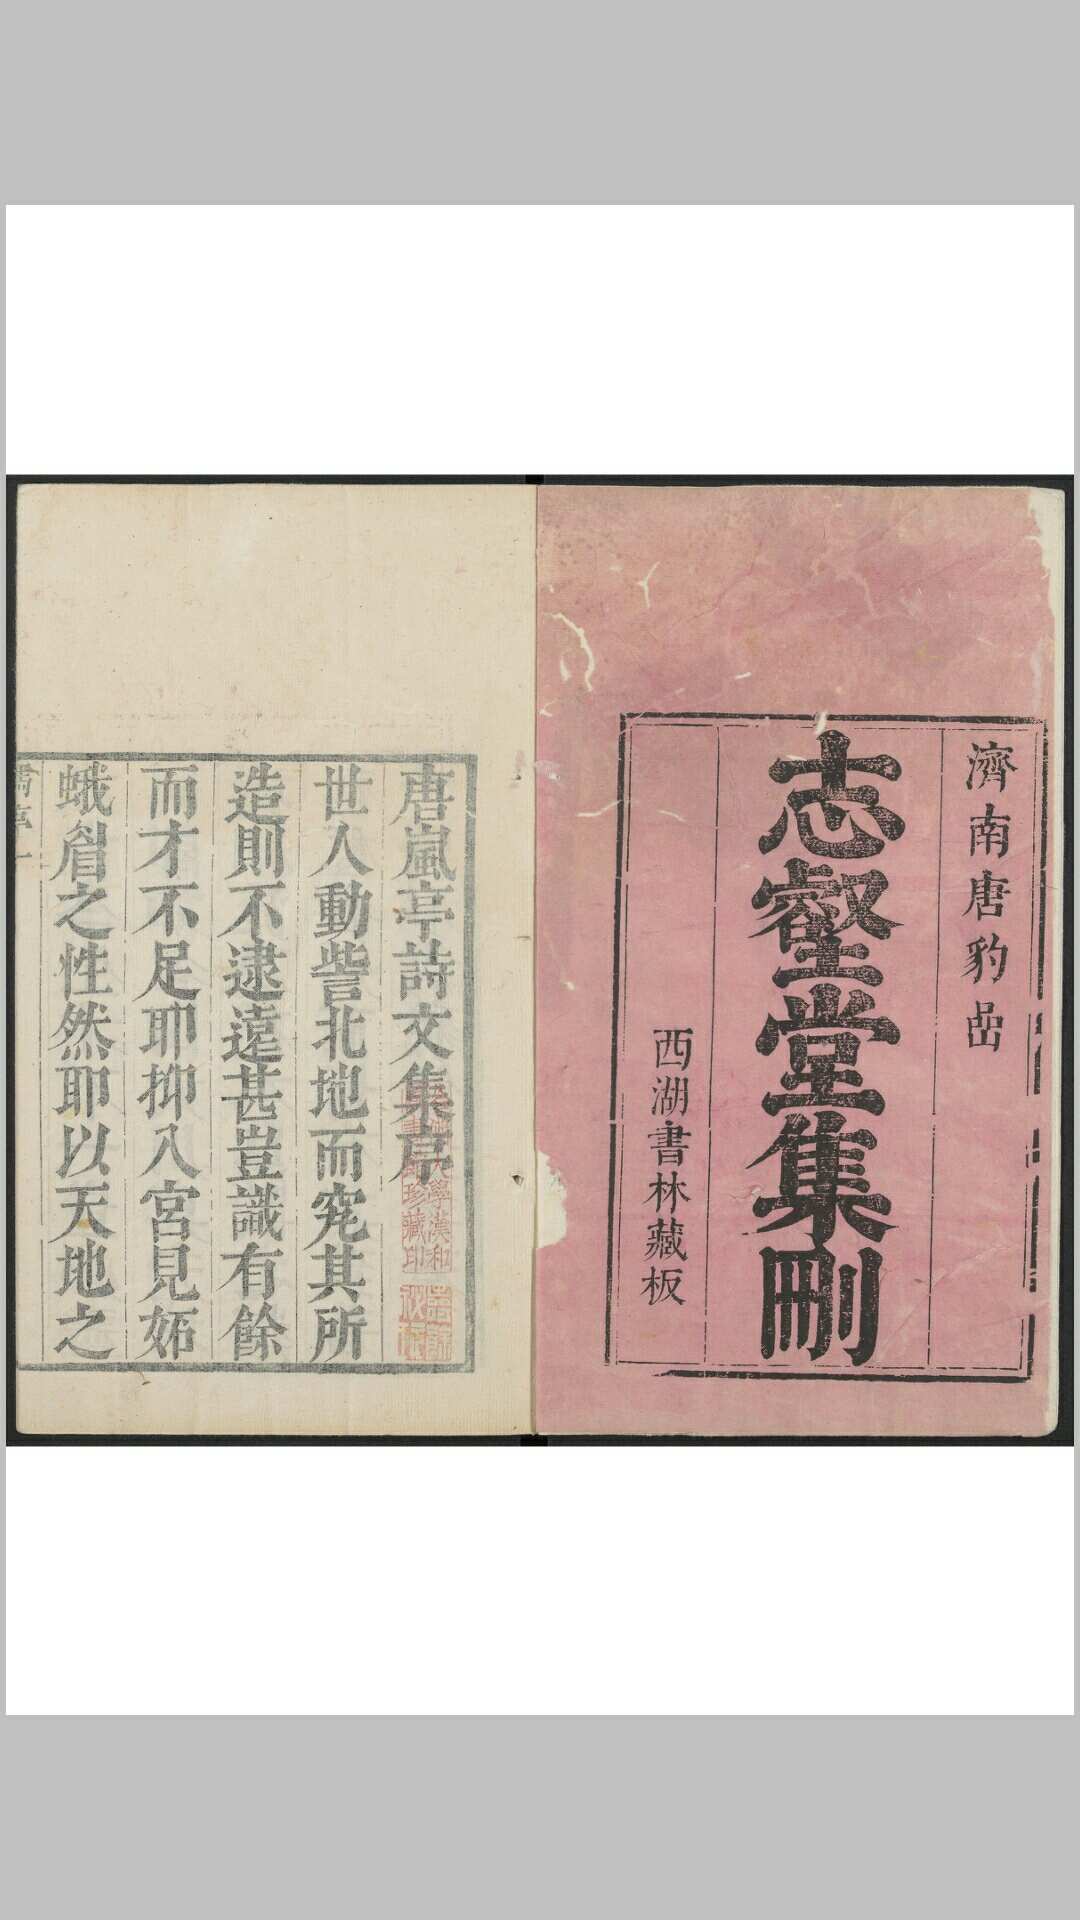 濟南唐豹嵒
志壑堂集刪
西湖書林藏板
唐嵐亭詩文集序
世人動訾北地而究其所
造則不逮遠甚豈識有餘
而才不足耶抑入宮見妬
蛾眉之性然耶以天地之
大學漢和
珍藏印